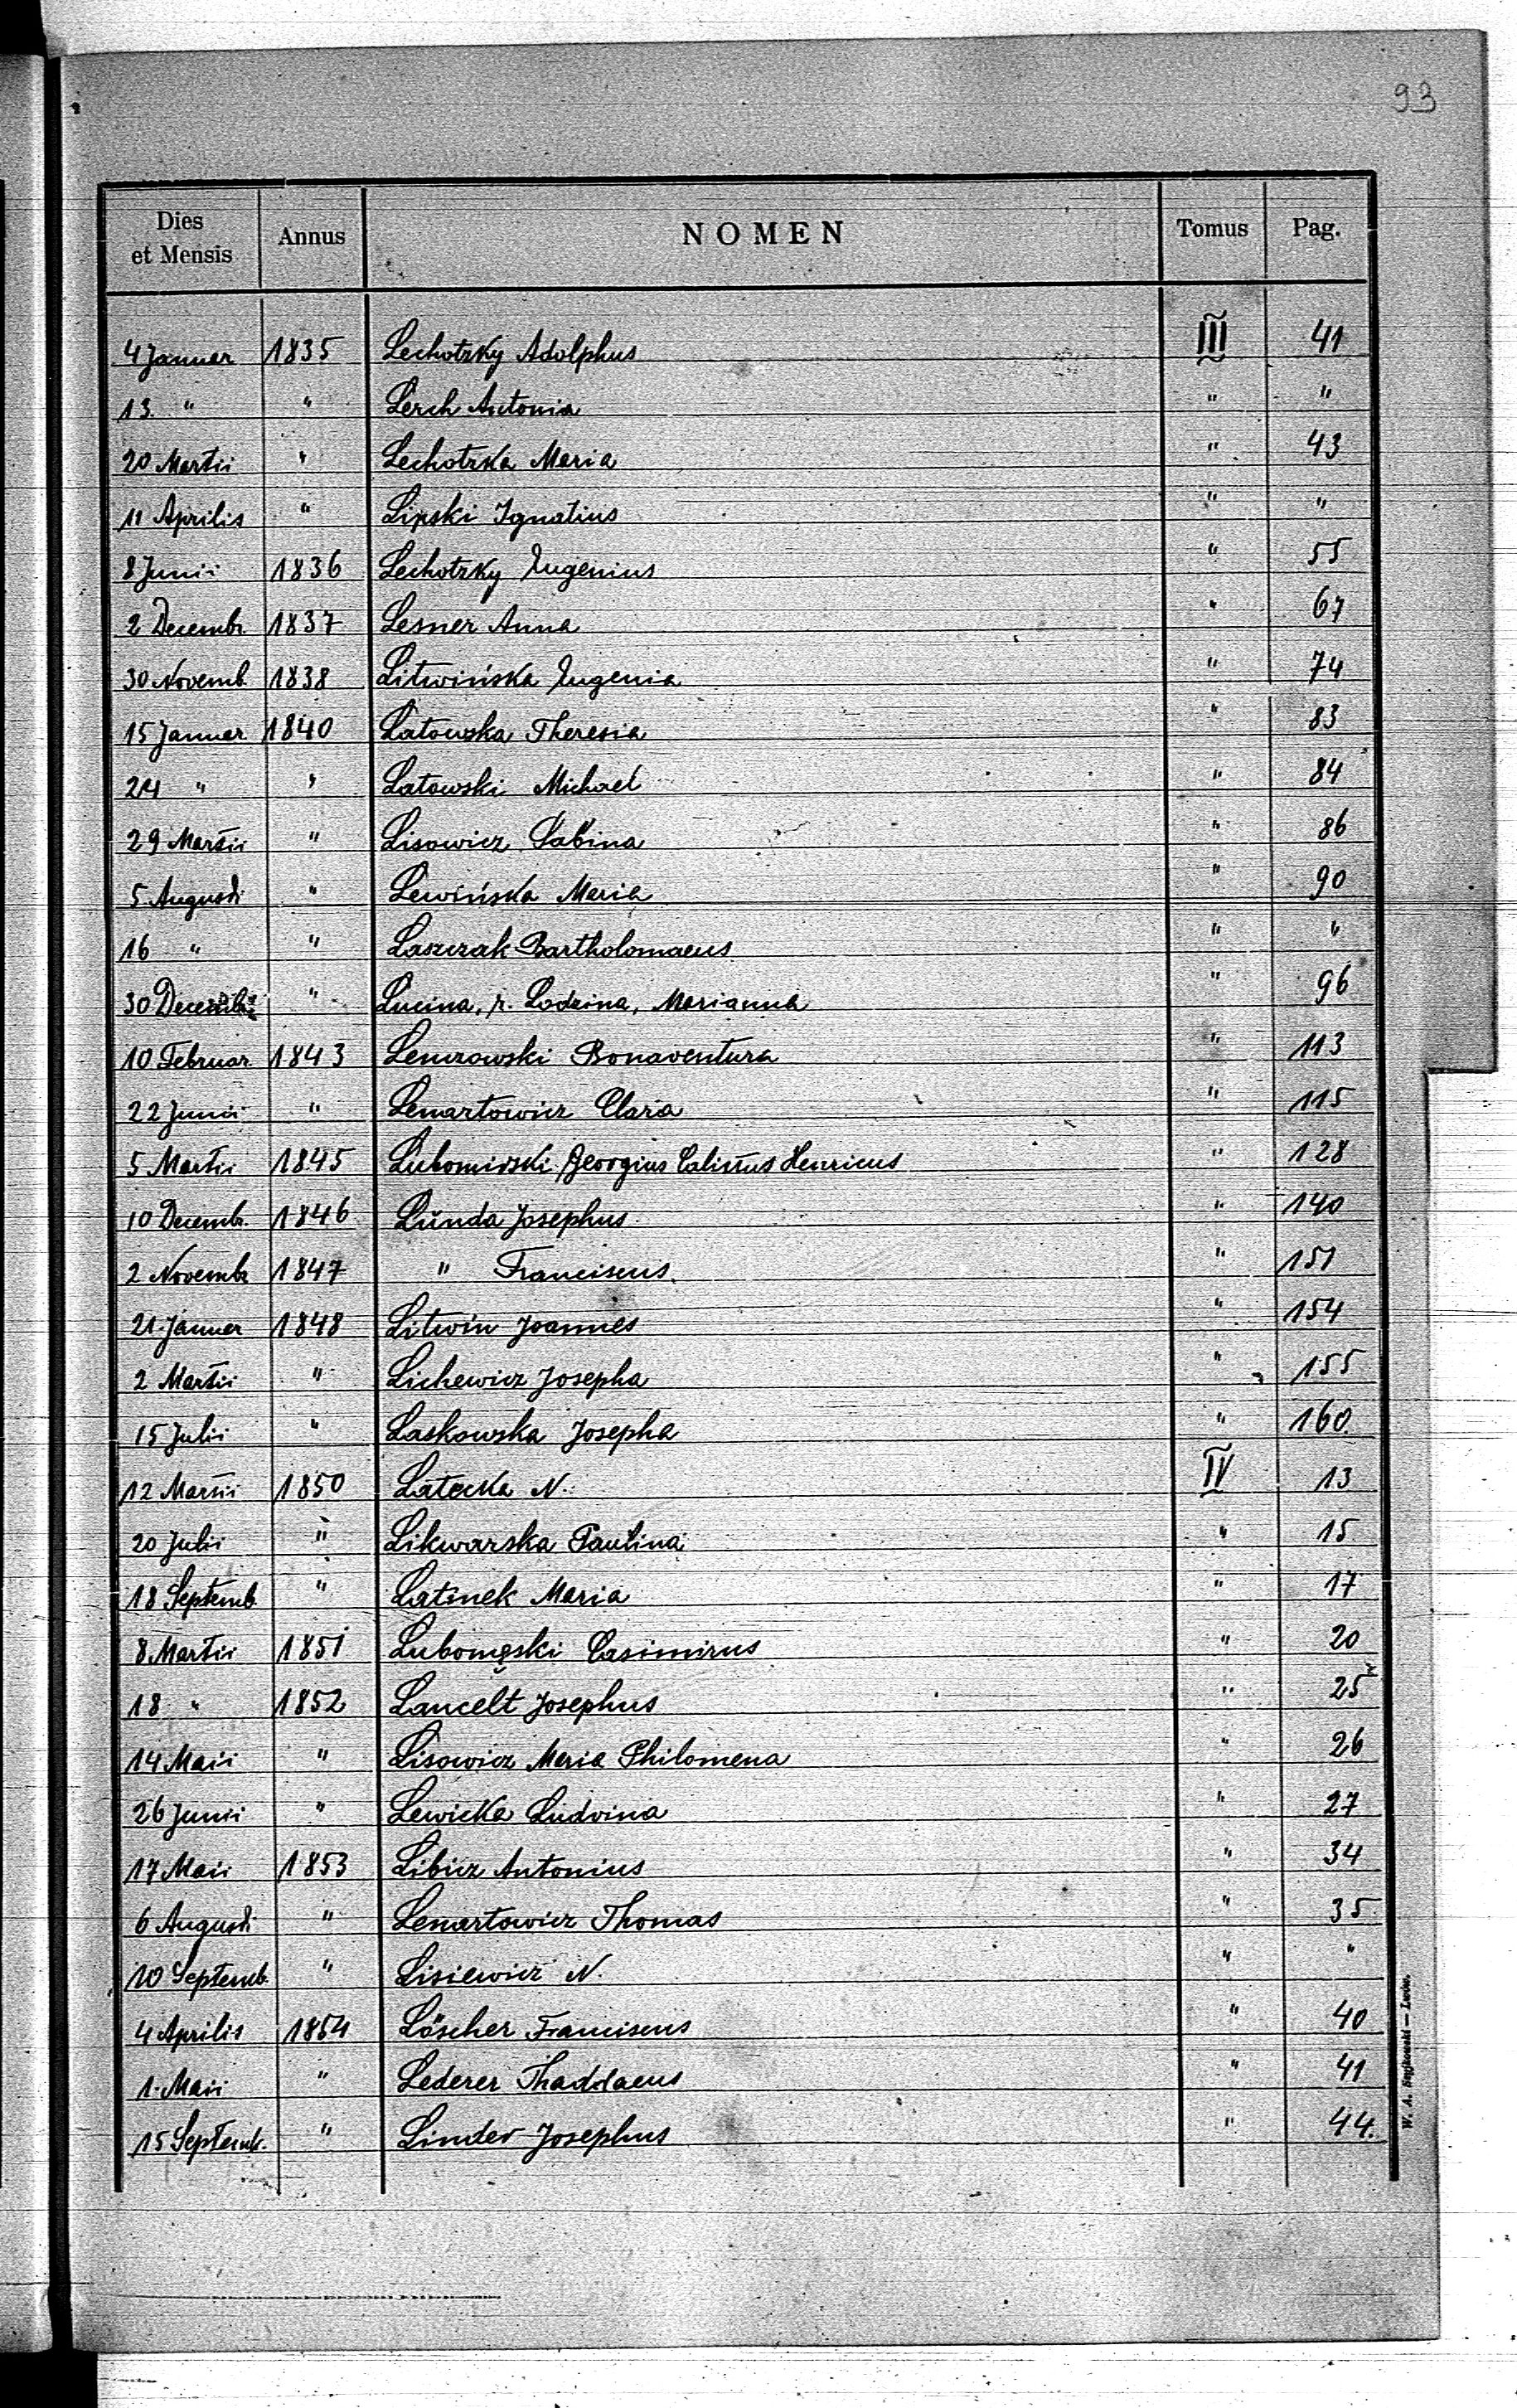 93
Dies et Mensis Annus NOMEN Tomus Pag.
4 Januar 1835 Lechotzky Adolphus III 41
13. " " Lerch Antonia " "
20 Martii " Lechotzka Maria " 43
11 Aprilis " Lipski Ignatius " "
8 Junii 1836 Lechotzky Eugenius " 55
2 Decemb. 1837 Lesner Anna " 67
30 Novemb. 1838 Litwińska Eugenia " 74
15 Januar 1840 Latowska Theresia " 83
24 " " Latowski Michael " 84
29 Martii " Lisowicz Sabina " 86
5 Augusti " Lewińska Maria " 90
16 " " Laszczak Bartholomaeus " "
30 Decembr " Lucina, r. Lodzina, Marianna " 96
10 Februar. 1843 Lenczowski Bonaventura " 113
22 Junii " Lenartowicz Clara " 115
5 Martii 1845 Lubomirski Georgius Calixtus Henricus " 128
10 Decemb. 1846 Lŭnda Josephus " 140
2 Novemb. 1847 " Franciscus " 151
21. Januar 1848 Litwin Joannes " 154
2 Martii " Lichewicz Josepha " 155
15 Julii " Laskowska Josepha " 160
12 Martii 1850 Latecka N. IV 13
20 Julii " Likwarska Paulina " 15
18 Septemb. " Latinek Maria " 17
8 Martii 1851 Lubomęski Casimirus " 20
18 " 1852 Lancelt Josephus " 25
14 Maii " Lisowicz Maria Philomena " 26
26 Junii " Lewicka Ludvina " 27
17 Maii 1853 Libicz Antonius " 34
6 Augusti " Lenartowicz Thomas " 35
10 Septemb. " Lisiewicz N. " "
4 Aprilis 1854 Löscher Franciscus " 40
1. Maii " Lederer Thaddaeus " 41
15 Septemb. " Linder Josephus " 44.